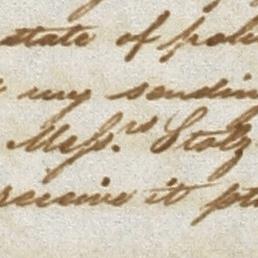 state of
my sending
Mess.rs Stolz
receive it